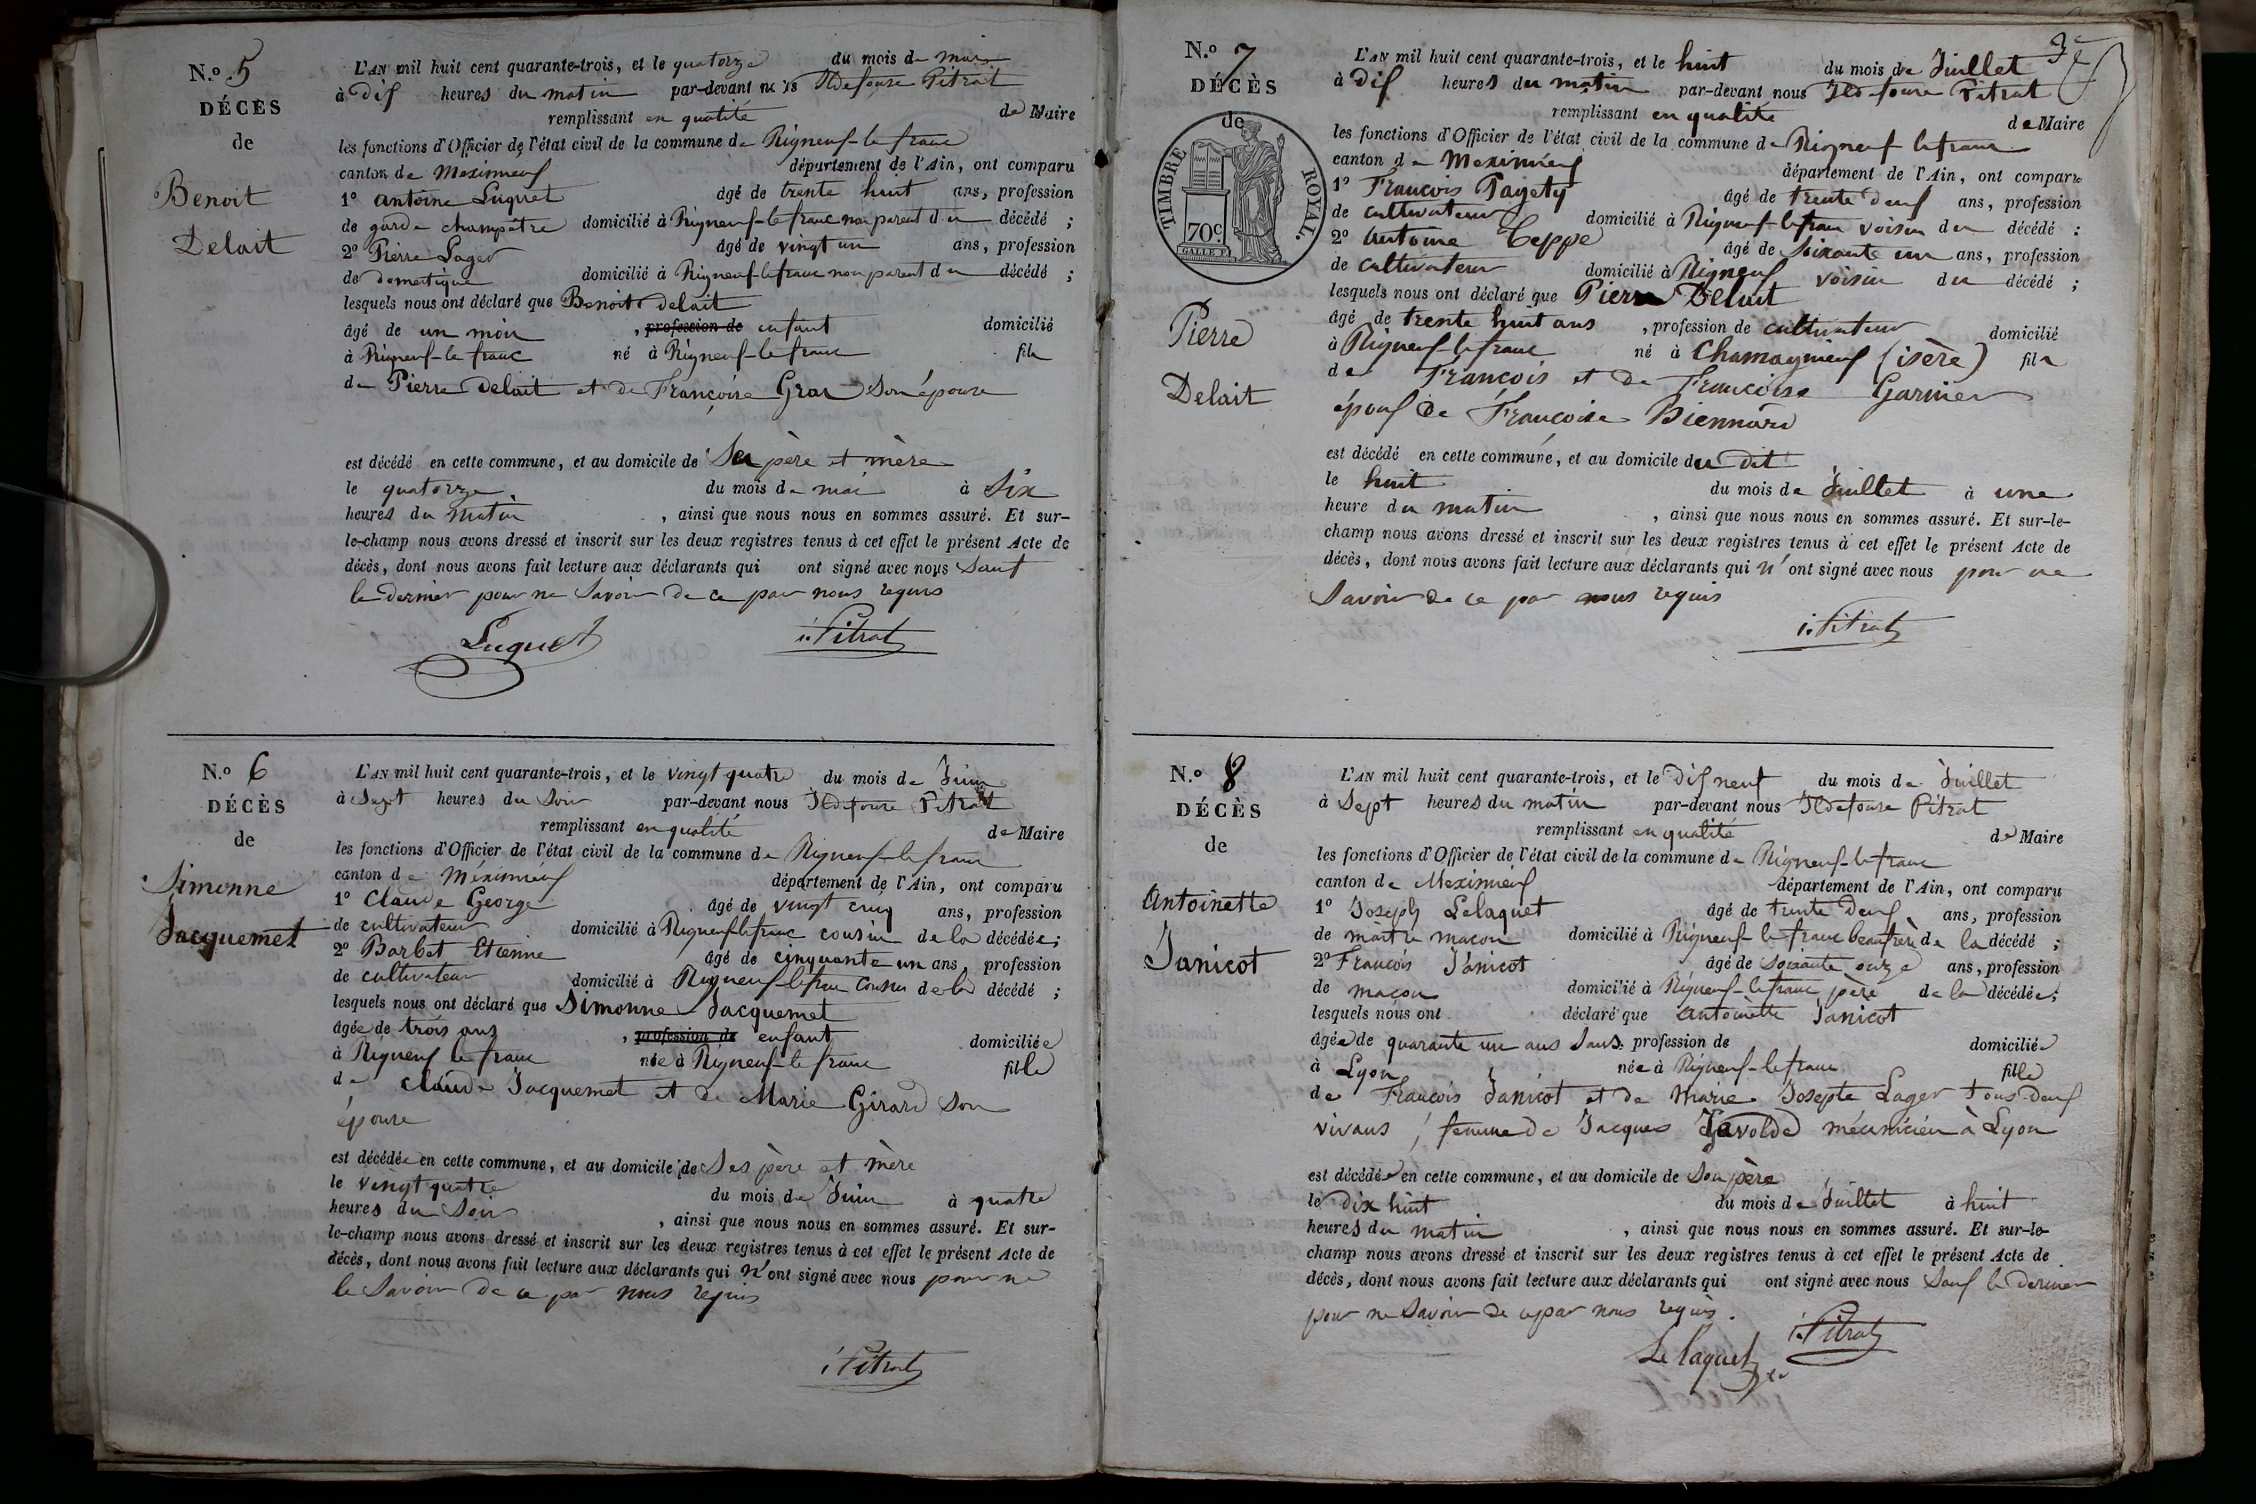 N.º 5
DÉCÈS
de
Benoit
Delait
L'AN mil huit cent quarante-trois, et le quatorze du mois de mai
à dix heures du matin par-devant nous Ildefonse Pitrat
remplissant en qualité de Maire
les fonctions d'Officier de l'état civil de la commune de Rigneux-le franc
canton de Meximieux département de l'Ain, ont comparu
1º antoine Luquet âgé de trente huit ans, profession
de garde champêtre domicilié à Rigneux-le franc non parent du décédé ;
2º Pierre Lager âgé de vingt un ans, profession
de domestique domicilié à Rigneux-lefranc non parent du décédé ;
lesquels nous ont déclaré que Benoit delait
âgé de un mois , profession de enfant domicilié
à Rigneux-le franc né à Rigneux-le franc fils
de Pierre delait et de Françoise Gros Son épouse
est décédé en cette commune, et au domicile de Ses père et mère
le quatorze du mois de mai à Six
heures du matin , ainsi que nous nous en sommes assuré. Et sur-
le-champ nous avons dressé et inscrit sur les deux registres tenus à cet effet le présent Acte de
décès, dont nous avons fait lecture aux déclarants qui ont signé avec nous Sauf
le dernier pour ne Savoir de ce par nous requis
Luquet i. Pitrat
N.º 6
DÉCÈS
de
Simonne
Jacquemet
L'AN mil huit cent quarante-trois, et le vingt quatre du mois de Juin
à Sept heures du Soir par-devant nous Ildefonse Pitrat
remplissant en qualité de Maire
les fonctions d'Officier de l'état civil de la commune de Rigneux-le franc
canton de Méximieux département de l'Ain, ont comparu
1º Claude George âgé de vingt cinq ans, profession
de cultivateur domicilié à Rigneux-lefranc cousin de la décédée ;
2º Barbet Etienne âgé de cinquante un ans, profession
de cultivateur domicilié à Rigneux-lefranc Cousin de la décédé ;
lesquels nous ont déclaré que Simonne Jacquemet
âgée de trois ans , profession de enfant domiciliée
à Rigneux le franc née à Rigneux-le franc fille
de claude Jacquemet et de Marie Girard Son
épouse
est décédée en cette commune, et au domicile de Ses père et mère
le vingt quatre du mois de Juin à quatre
heures du Soir , ainsi que nous nous en sommes assuré. Et sur-
le-champ nous avons dressé et inscrit sur les deux registres tenus à cet effet le présent Acte de
décès, dont nous avons fait lecture aux déclarants qui n'ont signé avec nous pour ne
le Savoir de ce par nous requis
i Pitrat
3e
N.º 7
DÉCÈS
de
TIMBRE ROYAL.
70c.
Pierre
Delait
L'AN mil huit cent quarante-trois, et le huit du mois de Juillet
à dix heures du matin par-devant nous Ildefonse Pitrat
remplissant en qualité de Maire
les fonctions d'Officier de l'état civil de la commune de Rigneux lefranc
canton de Meximieux département de l'Ain, ont comparu
1º Francois Pagety âgé de trente deux ans, profession
de cultivateur domicilié à Rigneux lefranc voisin du décédé ;
2º Antoine Teppe âgé de Soixante un ans, profession
de cultivateur domicilié à Rigneux voisin du décédé ;
lesquels nous ont déclaré que Pierre Delait
âgé de trente huit ans , profession de cultivateur domicilié
à Rigneux-lefranc né à Chamagnieux (isère) fils
de Francois et de Francoise Garnier
époux de Francoise
est décédé en cette commune, et au domicile du dit
le huit du mois de Juillet à une
heure du matin , ainsi que nous nous en sommes assuré. Et sur-le-
champ nous avons dressé et inscrit sur les deux registres tenus à cet effet le présent Acte de
décès, dont nous avons fait lecture aux déclarants qui n'ont signé avec nous pour ne
Savoir de ce par nous requis
i. Pitrat
N.º 8
DÉCÈS
de
Antoinette
Janicot
L'AN mil huit cent quarante-trois, et le dix neuf du mois de Juillet
à Sept heures du matin par-devant nous Ildefonse Pitrat
remplissant en qualité de Maire
les fonctions d'Officier de l'état civil de la commune de Rigneux-lefranc
canton de Meximieux département de l'Ain, ont comparu
1º Joseph Lelaquet âgé de trente deux ans, profession
de maitre macon domicilié à Rigneux-lefranc beaufrère de la décédé ;
2º Francois Janicot âgé de Soixante onze ans, profession
de macon domicilié à Rigneux-lefranc père de la décédée ;
lesquels nous ont déclaré que antoinette Janicot
âgée de quarante un ans Sans profession de domiciliée
à Lyon née à Rigneux-lefranc fille
de Francois Janicot et de Marie Josepte Lager tous deux
vivans , femme de Jacques mécanicien à Lyon
est décédée en cette commune, et au domicile de Son père
le dix huit du mois de Juillet à huit
heures du matin , ainsi que nous nous en sommes assuré. Et sur-le-
champ nous avons dressé et inscrit sur les deux registres tenus à cet effet le présent Acte de
décès, dont nous avons fait lecture aux déclarants qui ont signé avec nous Sauf le dernier
pour ne Savoir de ce par nous requis.
Le laquet i. Pitrat